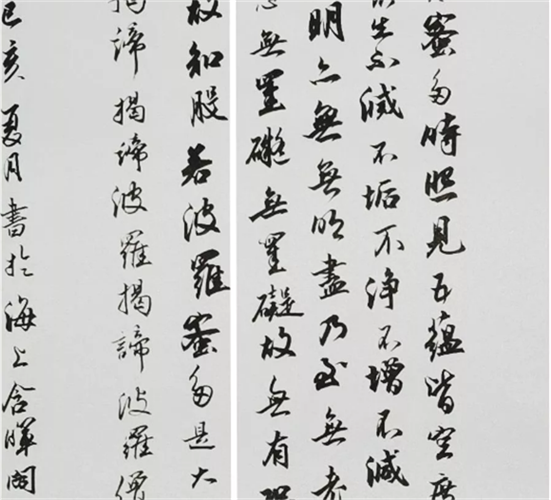 蜜多時照見五蘊皆空度
生不滅不垢不淨不增不減
明亦無無明盡乃至無老
無罣礙無罣礙故無有恐
故知般若波羅蜜多是大
諦揭諦波羅揭諦波羅僧
己亥夏月書於海上含暉閣